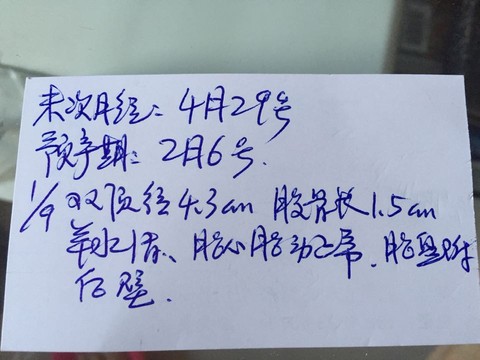 末次月经: 4月29号
预产期: 2月6号.
1/9 双顶径4.3cm 股骨长1.5cm
羊水1痕、胎心胎动正常.胎盘附
后壁.